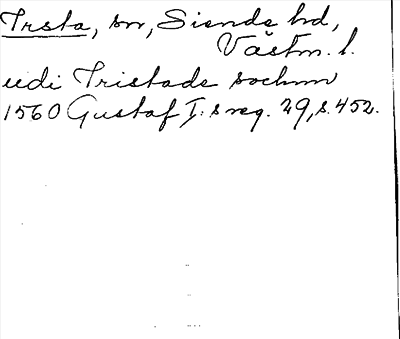 Irsta, sn, Siende hd,
Västm. l.
udi Tristade sochnn
1560 Gustaf I:s reg. 29, s. 452.